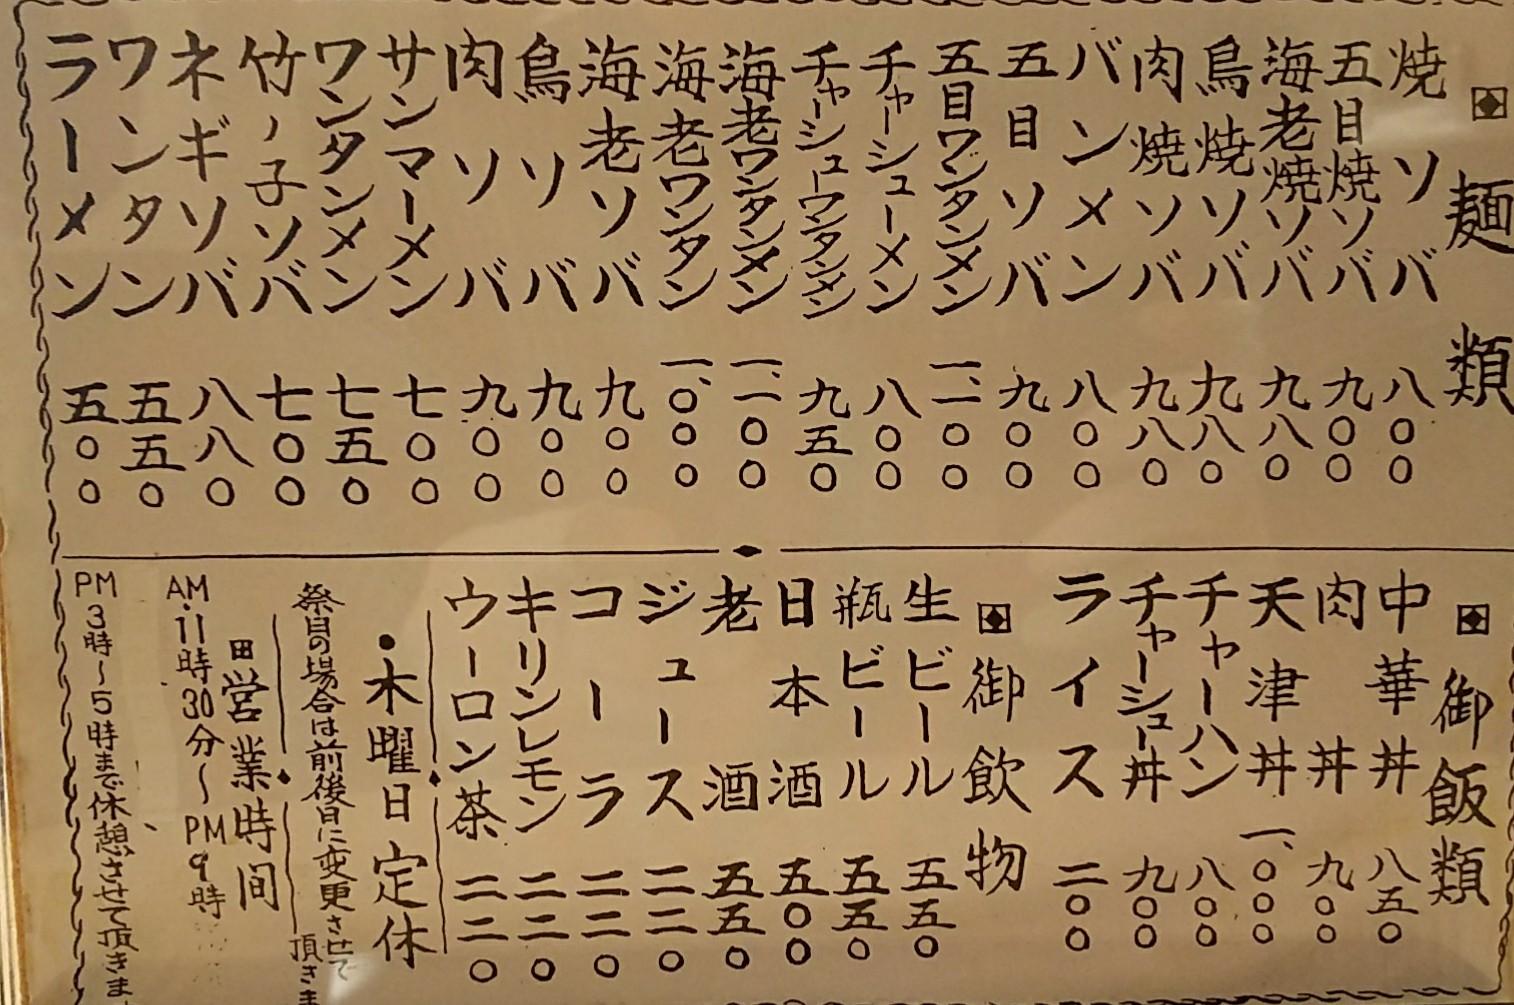 麺類
焼ソバ 八〇〇
五目焼ソバ 九〇〇
海老焼ソバ 九八〇
鳥焼ソバ 九八〇
肉焼ソバ 九八〇
バンメン 八〇〇
五目ソバ 九〇〇
五目ワンタンメン 一、一〇〇
チャーシューメン 八〇〇
チャーシューワンタンメン 九五〇
海老ワンタンメン 一、一〇〇
海老ワンタン 一、〇〇〇
海老ソバ 九〇〇
鳥ソバ 九〇〇
肉ソバ 九〇〇
サンマーメン 七〇〇
ワンタンメン 七五〇
竹ノ子ソバ 七〇〇
ネギソバ 八八〇
ワンタン 五五〇
ラーメン 五〇〇
御飯類
中華丼 八五〇
肉丼 九〇〇
天津丼 一、〇〇〇
チャーハン 八〇〇
チャーシュー丼 九〇〇
ライス 二〇〇
御飲物
生ビール 五五〇
瓶ビール 五五〇
日本酒 五〇〇
老酒 五五〇
ジュース 二二〇
コーラ 二二〇
キリンレモン 二二〇
ウーロン茶 二二〇
・木曜日定休
祭日の場合は前後日に変更させて
頂きま
営業時間
AM.11時30分〜PM9時
PM3時〜5時まで休憩させて頂きま